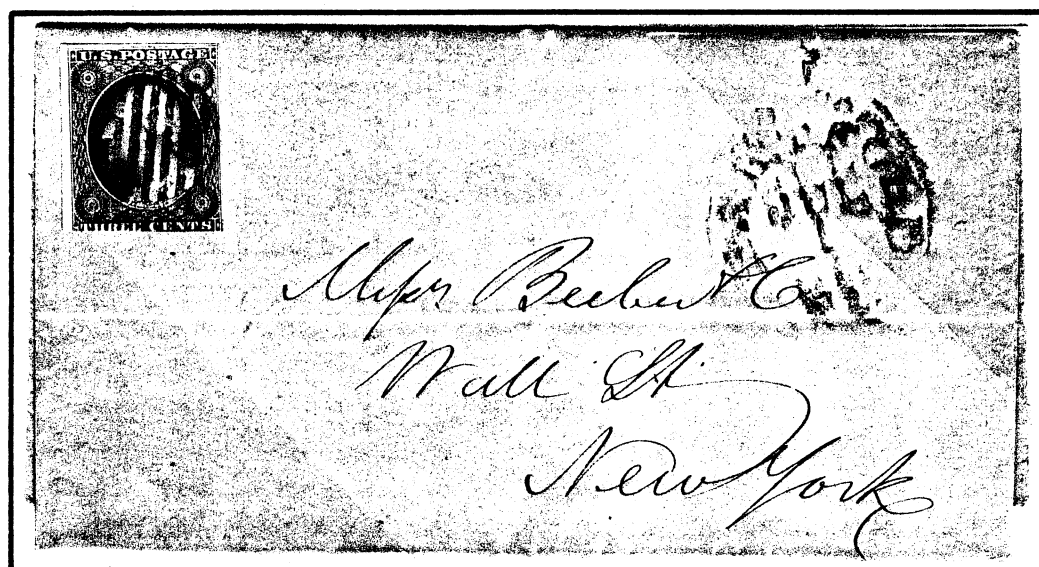 U.S. POSTAGE
THREE CENTS
Messrs Beebe & Co
Wall St
New York